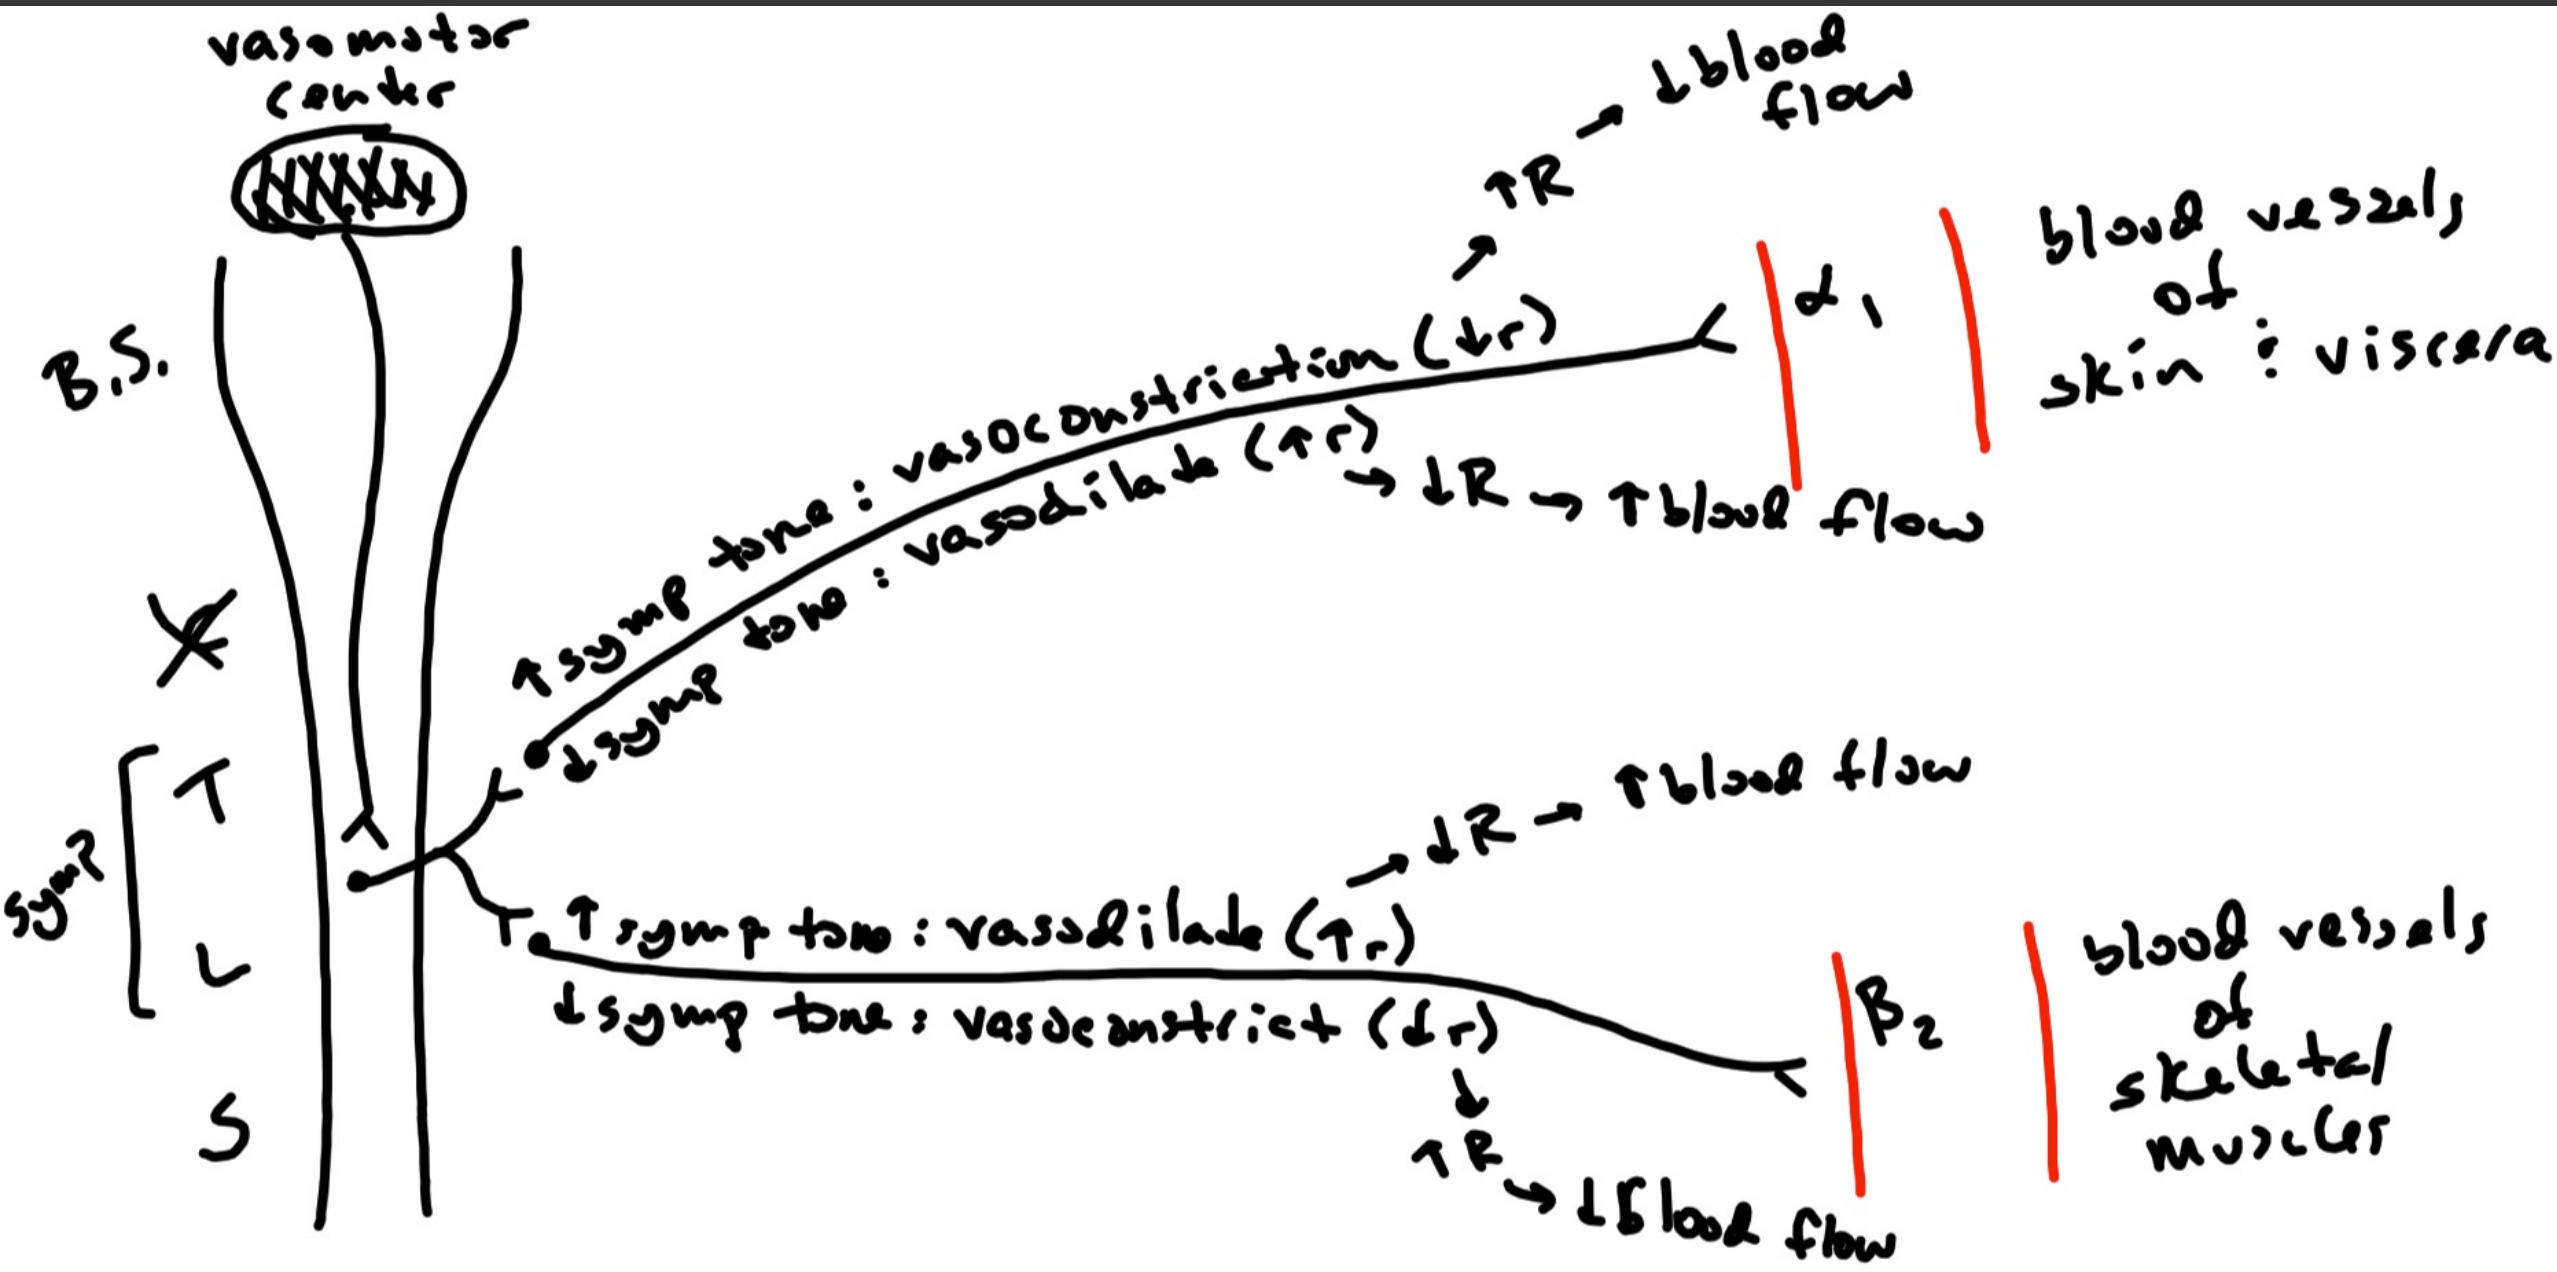 vasomotor
center
B.S.
T
L
S
symp
↑ symp tone : vasoconstriction (↓r)
↑R
↓blood
flow
↓symp tone : vasodilate (↑r)
→ ↓R → ↑blood flow
α1
blood vessels
of
skin : viscera
↑ symp tone : vasodilate (↑r)
→ ↓R → ↑blood flow
↓ symp tone : vasoconstrict (↓r)
↓
↑R
→ ↓blood flow
β2
blood vessels
of
skeletal
muscles